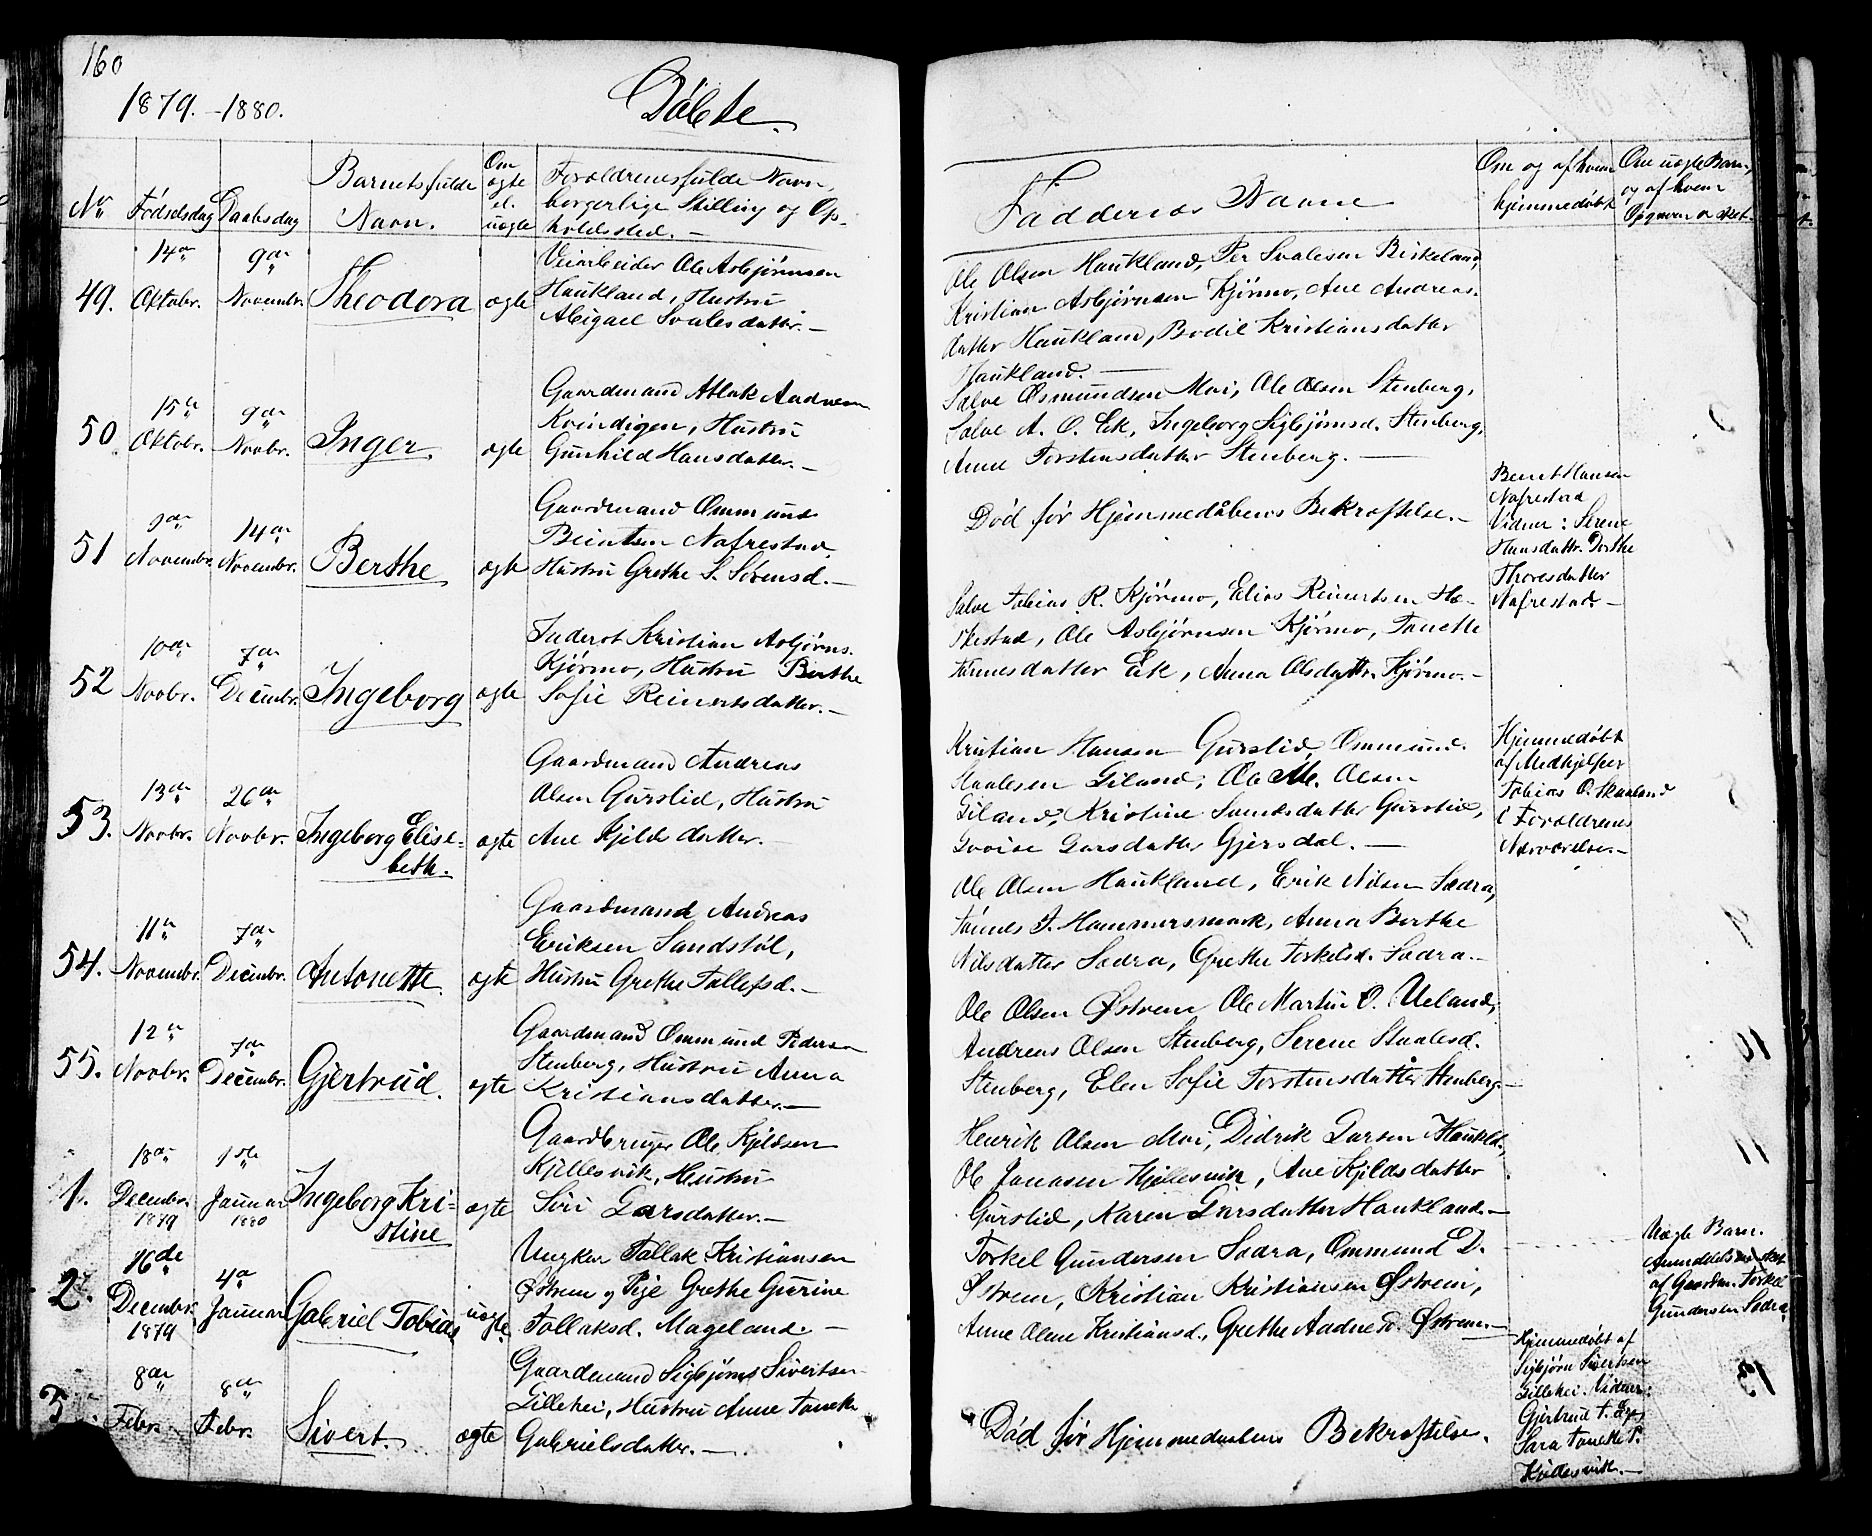 160
1879.-1880.
Døbte.
No
Fødselsdag
Daabsdag
Barnets fulde
Navn.
Om
ægte
el.
uægte
Forældrenes fulde Navn,
borgerlige Stilling og Op-
holdssted.
Faddernes Navne
Om og af hvem
hjemmedøbt
Om uægte Barn,
og af hvem
Opgaven er sket.
49.
14de
Oktobr.
9de
Novembr.
Theodora
ægte
Veiarbeider Ole Asbjørnsen
Haukland, Hustru
Abigael Svalesdatter.-
Ole Olsen Haukland, Per Svalesen Birkeland,
Kristian Asbjørnsen Kjørmo, Ane Andreas-
datter Haukland, Bodil Kristiansdatter
Haukland.-
50
15de
Oktobr.
9de
Novbr.
Inger
ægte
Gaardmand Atlak Aadnesen
Kvindigen, Hustru
Gunhild Hansdatter.-
Salve Osmundsen Moi, Ole Olsen Stenberg,
Salve A. O. Eik, Ingeborg Sigbjørnsd. Stenberg,
Anne Torstensdatter Stenberg.-
51
9de
Novembr.
14de
Novembr.
Berthe
ægte
Gaardmand Ommund
Beintsen Nafrestad
Hustru Grethe S. Sørensd.-
Død før Hjemmedåbens Bekræftelse.-
Bernt Hansen
Nafrestad
Vidner: Serene
Hansdattr. Dorthe
Thoresdatter
Nafrestad.-
52
10de
Novbr.
7de
Decembr.
Ingeborg
ægte
Inderst Kristian Asbjørns.
Kjørmo, Hustru Berthe
Sofie Reinertsdatter.-
Salve Tobias R. Kjørmo, Elias Reinertsen Hæ-
stad, Ole Asbjørnsen Kjørmo, Tanette
Tønnesdatter Eik, Anna Olsdattr. Kjørmo.-
53.
13de
Novbr.
26de
Novbr.
Ingeborg Elise-
beth.
ægte
Gaardmand Andreas
Olsen Gurslid, Hustru
Ane Kjildsdatter.-
Kristian Hansen Gurslid, Ommund
Staalesen Eiland, Ole M. Olsen
Eiland, Kristine Samtsdatter Gurslid,
Lovise Larsdatter Gjersdal.-
Hjemmedøbt
af Medhjelper
Tobias O. Skaaland
i Forældrenes
Nærværelse.-
54.
11te
Novembr.
7de
Decembr.
Antonette
ægte
Gaardmand Andreas
Eriksen Sandstøl,
Hustru Grethe Tollefsd.-
Ole Olsen Haukland, Erik Nilsen Sædra,
Tønnes J. Hammersmark, Anna Berthe
Nilsdatter Sædra, Grethe Torkelsd. Sædra.-
55.
12te
Novbr.
7de
Decembr.
Gjertrud.
ægte
Gaardmand Ommund Pedersen
Stenberg, Hustru Anna
Kristiansdatter.-
Ole Olsen Østrem, Ole Martin O. Ueland,
Andreas Olsen Stenberg, Serene Staalesd.
Stenberg, Elen Sofie Torstensdatter Stenberg.-
1.
18de
Decembr.
1879
1ste
Januar
1880
Ingeborg Kri-
stine
ægte
Gaardbruger Ole Kjildsen
Kjellesvik, Hustru
Siri Larsdatter.-
Henrik Olsen Moi, Didrik Larsen Haukld.,
Ole Jonassen Kjellesvik, Ane Kjildsdatter
Gurslid, Karen Larsdatter Haukland.-
2.
16de
Decembr.
1879
4de
Januar
Gabriel Tobias
uægte.
Ungkar Tallak Kristiansen
Østrem og Pige Grethe Gurine
Tollaksd. Mageland.-
Torkel Gundersen Sædra, Ommund E.
Østrem, Kristian Kristiansen Østrem,
Anne Olene Kristiansd., Grethe Aadnesd. Østrem.-
Uægte Barn.
Anmeldelsen sket
af Gaardm. Torkel
Gundersen Sædra
3.
8de
Febr.
8de
Febr.
Sivert.
ægte
Gaardmand Sigbjørn Sivertsen
Lillehei, Hustru Anne Tanette
Gabrielsdatter.-
Død før Hjemmedaabens Bekræftelse.
Hjemmedøbt af
Sigbjørn Sivertsen
Lillehei. Vidner:
Gjertrud T.
Sara Tanette P.
Kjellesvik.-